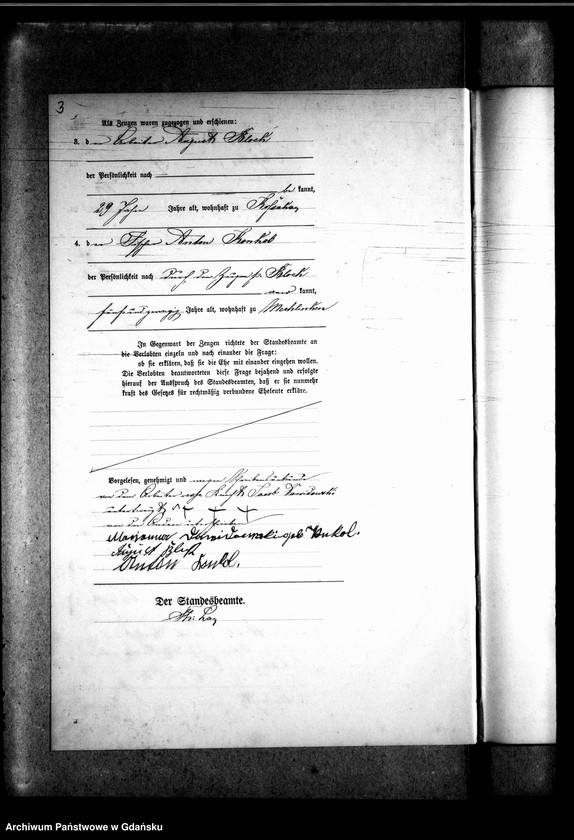 3
Als Zeugen waren zugezogen und erschienen:
3. d er Arbeiter August Block
der Persönlichkeit nach
be kannt,
29 Jahre Jahre alt, wohnhaft zu
4. d er Anton Konkol
der Persönlichkeit nach durch den Zeugen Block
kannt,
fünfundzwanzig Jahre alt, wohnhaft zu Mechlinken
In Gegenwart der Zeugen richtete der Standesbeamte an
die Verlobten einzeln und nach einander die Frage:
ob sie erklären, daß sie die Ehe mit einander eingehen wollen.
Die Verlobten beantworteten diese Frage bejahend und erfolgte
hierauf der Ausspruch des Standesbeamten, daß er sie nunmehr
kraft des Gesetzes für rechtmäßig verbundene Eheleute erkläre.
Vorgelesen, genehmigt und wegen
von dem Arbeiter Jacob
+ + +
von den
Marianna Dawidowski geb Konkol.
August Block
Anton Konkol.
Der Standesbeamte.
Archiwum Państwowe w Gdańsku